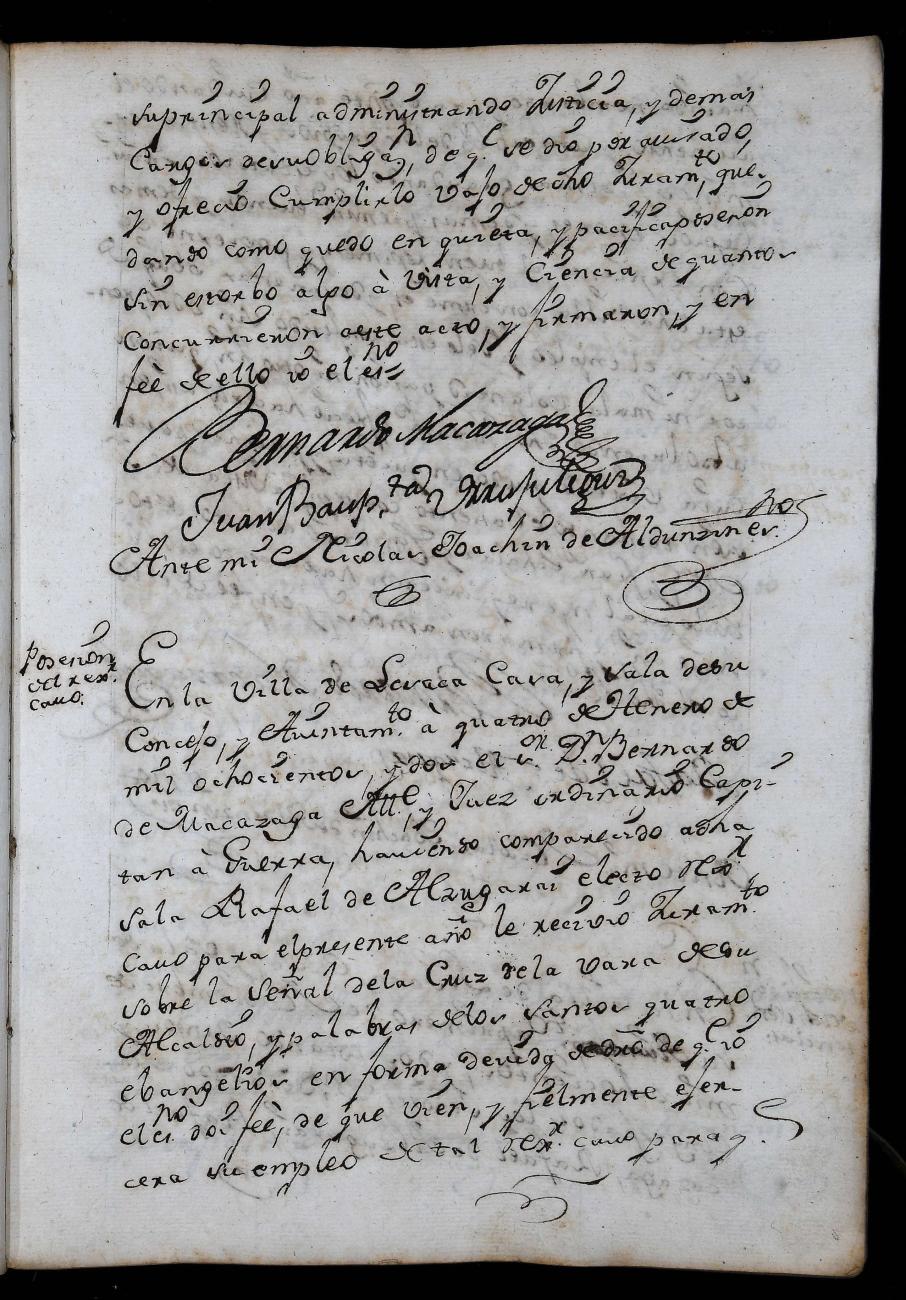 suprincipal administrando Justicia, y demas
Cargos desuobligaz.n, de q.e se dio por avisado,
y ofrecio Cumplirlo vajo de dho Juram.to, que-
dando como quedo en quieta, y pacificaposesion
sin estorbo algo à vista, y Ciencia de quantos
concurrieron aeste acto, y firmaron, y en
feè de ello io el es.no
Bernardo Macazaga
Juan Baup.ta
Ante mi Nicolas Joachin de Aldunzin es.no
Posesion
del rex.r
cavo.
En la Villa de Lesaca Casa, y sala desu
Concejo, y Aiuntam.to à quatro de Henero de
mil ochocientos, y dos el s.or D.n Bernardo
de Macazaga Alc.e, y Juez ordinario Capi-
tan à Guerra, haviendo comparecido adha
sala Rafael de Alzugarai electo Rex.r
cavo para elpresente año le recivio Juram.to
sobre la Señal dela Cruz dela vara desu
Alcaldio, y palabras delos santos quatro
ebangelios en forma devida de dro de q.e io
el es.no doi feè, de que vien, y fielmente ejer-
cera su empleo de tal Rex.r cavo para q.e